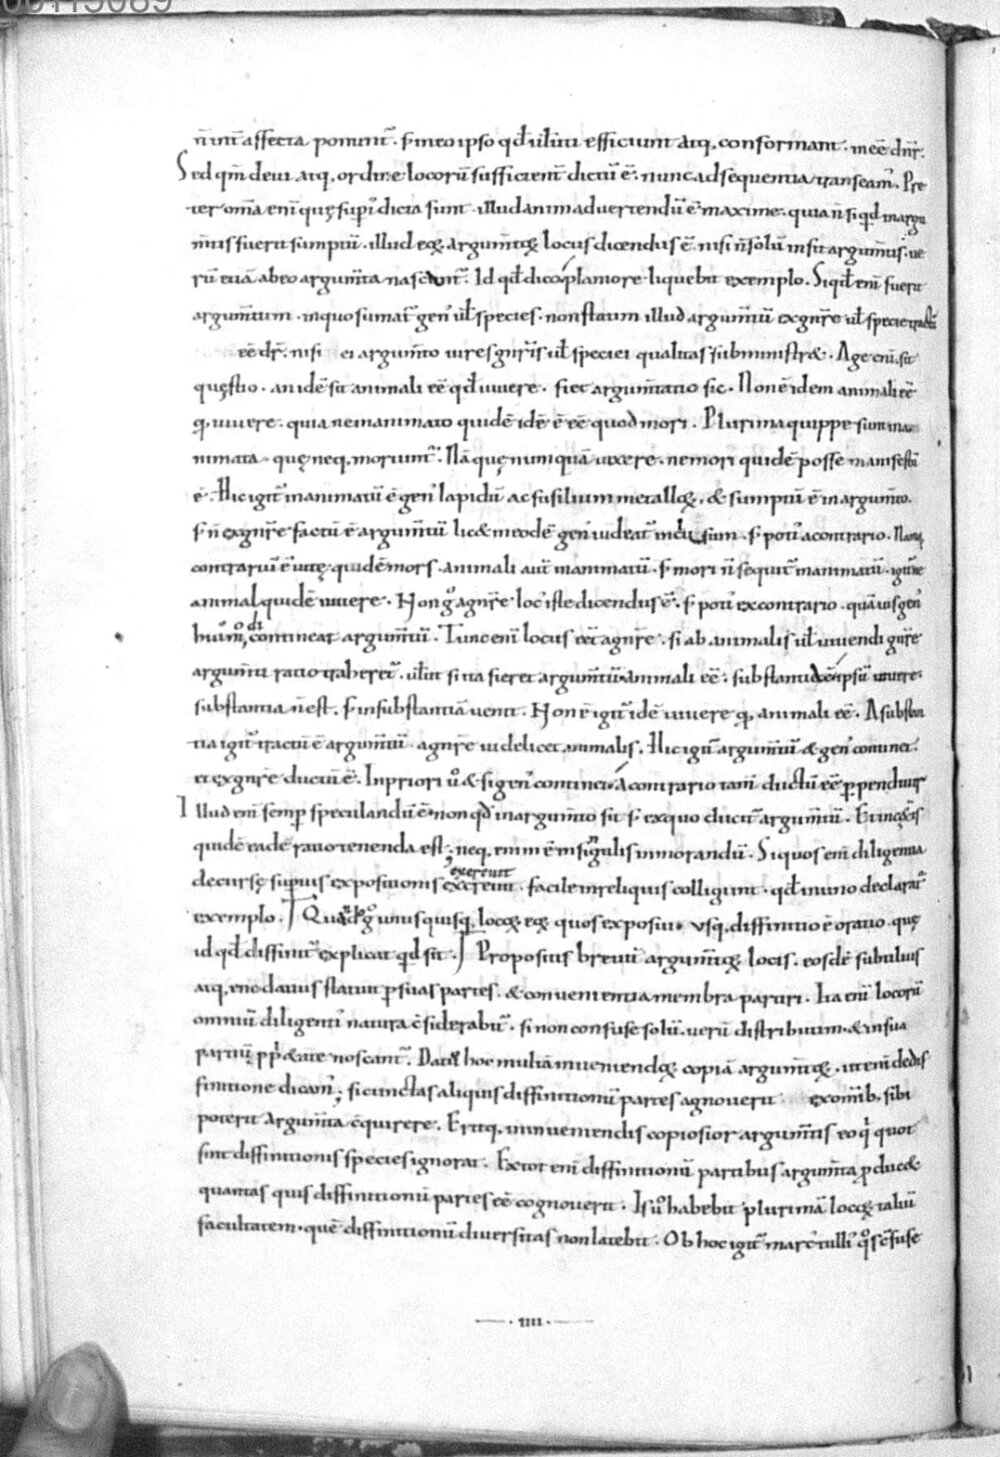 n̄ int̄ affecta ponunt᷑. s; in eo ipso qđ utilit̄ efficiunt atq, conformant. inee᷒ dn̄r.
Sed qm̄ de ui atq, ordine locorū sufficient̄ dictū ē. nunc ad sequentia transeam᷒. Pre
ter om̄a eni᷒ quę sup᷑i᷒ dicta sunt. illud animaduertendū ē maxime. quia n̄ si qd in argu
m̄tis fuerit sumptū. illud eoꝝ argum̄toꝝ locus dicendus ē. nisi n̄ solū insit argum̄tis. ue
rū etiā ab eo argum̄ta nascunt᷑. Id qđ dico planiore liquebit exemplo. Si qđ eni᷒ fuerit
argum̄tum. in quo sumat᷑ gen᷒ uł species. non statim illud argum̄tū ex gn̄re uł specie tractū
eē dr̄. nisi ei argum̄to uires gn̄ris uł speciei qualitas subministret. Age eni᷒. sit
quęstio. an idē sit animali eē qđ uiuere. fiet argum̄tatio sic. Non ē idem animali eē
q, uiuere. quia nec inanimato quidē idē ē eē quod mori. Plurima quippe sunt ina
nimata. quę neq, moriunt᷑. Nā quę numquā uixere. ne mori quidē posse manifestū
ē. Hic igit᷑ inanimatū ē gen᷒ lapidū ac fusilium metalloꝝ. & sumptū ē in argum̄to.
s; n̄ ex gn̄re factū ē argum̄tū lic& in eodē gen᷒ uideat᷑ sum. s; poti᷒ a contrario. Namq,
contrariū ē uitę quidē mors. animali aut̄ inanimatū. s; mori n̄ sequit᷑ inanimatū. igit᷑ ne
animal quidē uiuere. Non g̊ a gn̄re loc᷒ iste dicendus ē. s; poti᷒ ex contrario. quāuis gen᷒
contineat argum̄tū. Tunc eni᷒ locus eēt a gn̄re. si ab animalis uł uiuendi gn̄re
argum̄ti ratio traheret᷑. uł ut si ita fieret argum̄tū. animali eē. substantia ē. ipsū uiuere.
substantia n̄ est. s; in substantiā uenit. Non ē igit᷑ idē uiuere q, animali eē. A substan
tia igit᷑ tractū ē argum̄tū. a gn̄re uidelicet animalis. Hic igit᷑ argum̄tū & gen᷒ continet.
et ex gn̄re ductū ē. In priori ů & si gen᷒ continet. a contrario tam̄ ductū eē perpendit᷑
Illud eni᷒ semp speculandū ē. non qđ in argum̄to sit s; ex quo ducit᷑ argum̄tū. Et in cęt̄is
quidē eadē ratio tenenda est. neq, enim ē in singulis inmorandū. Si quos eni᷒ diligentia
exercuit
decursę superius expositionis exercuit. facile in reliquis colligunt. qđ in uno declarat᷑
exemplo. Quid g̊ unusquisq, locoꝝ eoꝝ quos exposui. usq, diffinitio ē oratio. quę
id qđ diffinit᷑ explicat qd sit. Propositis breuit̄ argum̄toꝝ locis. eosdē subtilius
atq, enodatius statuit p suas partes. & conuenientia membra partiri. Ita eni᷒ locorū
omniū diligenti᷒ natura c̄siderabit᷑. si non confuse solū. uerū distributim. & in sua
partitū ppriete noscant᷑. Dat hoc multā inueniendoꝝ copiā argum̄toꝝ. ut eni᷒ de dif
finitione dicam᷒. si cunctas aliquis diffinitionū partes agnouerit ex om̄ib, sibi
poterit argum̄ta c̄quirere. Eritq, inueniendis copiosior argum̄tis eo qͥ quot
sint diffinitionis species ignorat. Ex tot eni᷒ diffinitionū partibus argum̄ta pducet
quantas quis diffinitionū partes eē cognouerit. Is ů habebit plurimā locoꝝ talium
facultatem. quē diffinitionū diuersitas non latebit. Ob hoc igit᷑ marc᷒ tulli᷒ q̊s c̄fuse
· IIII ·